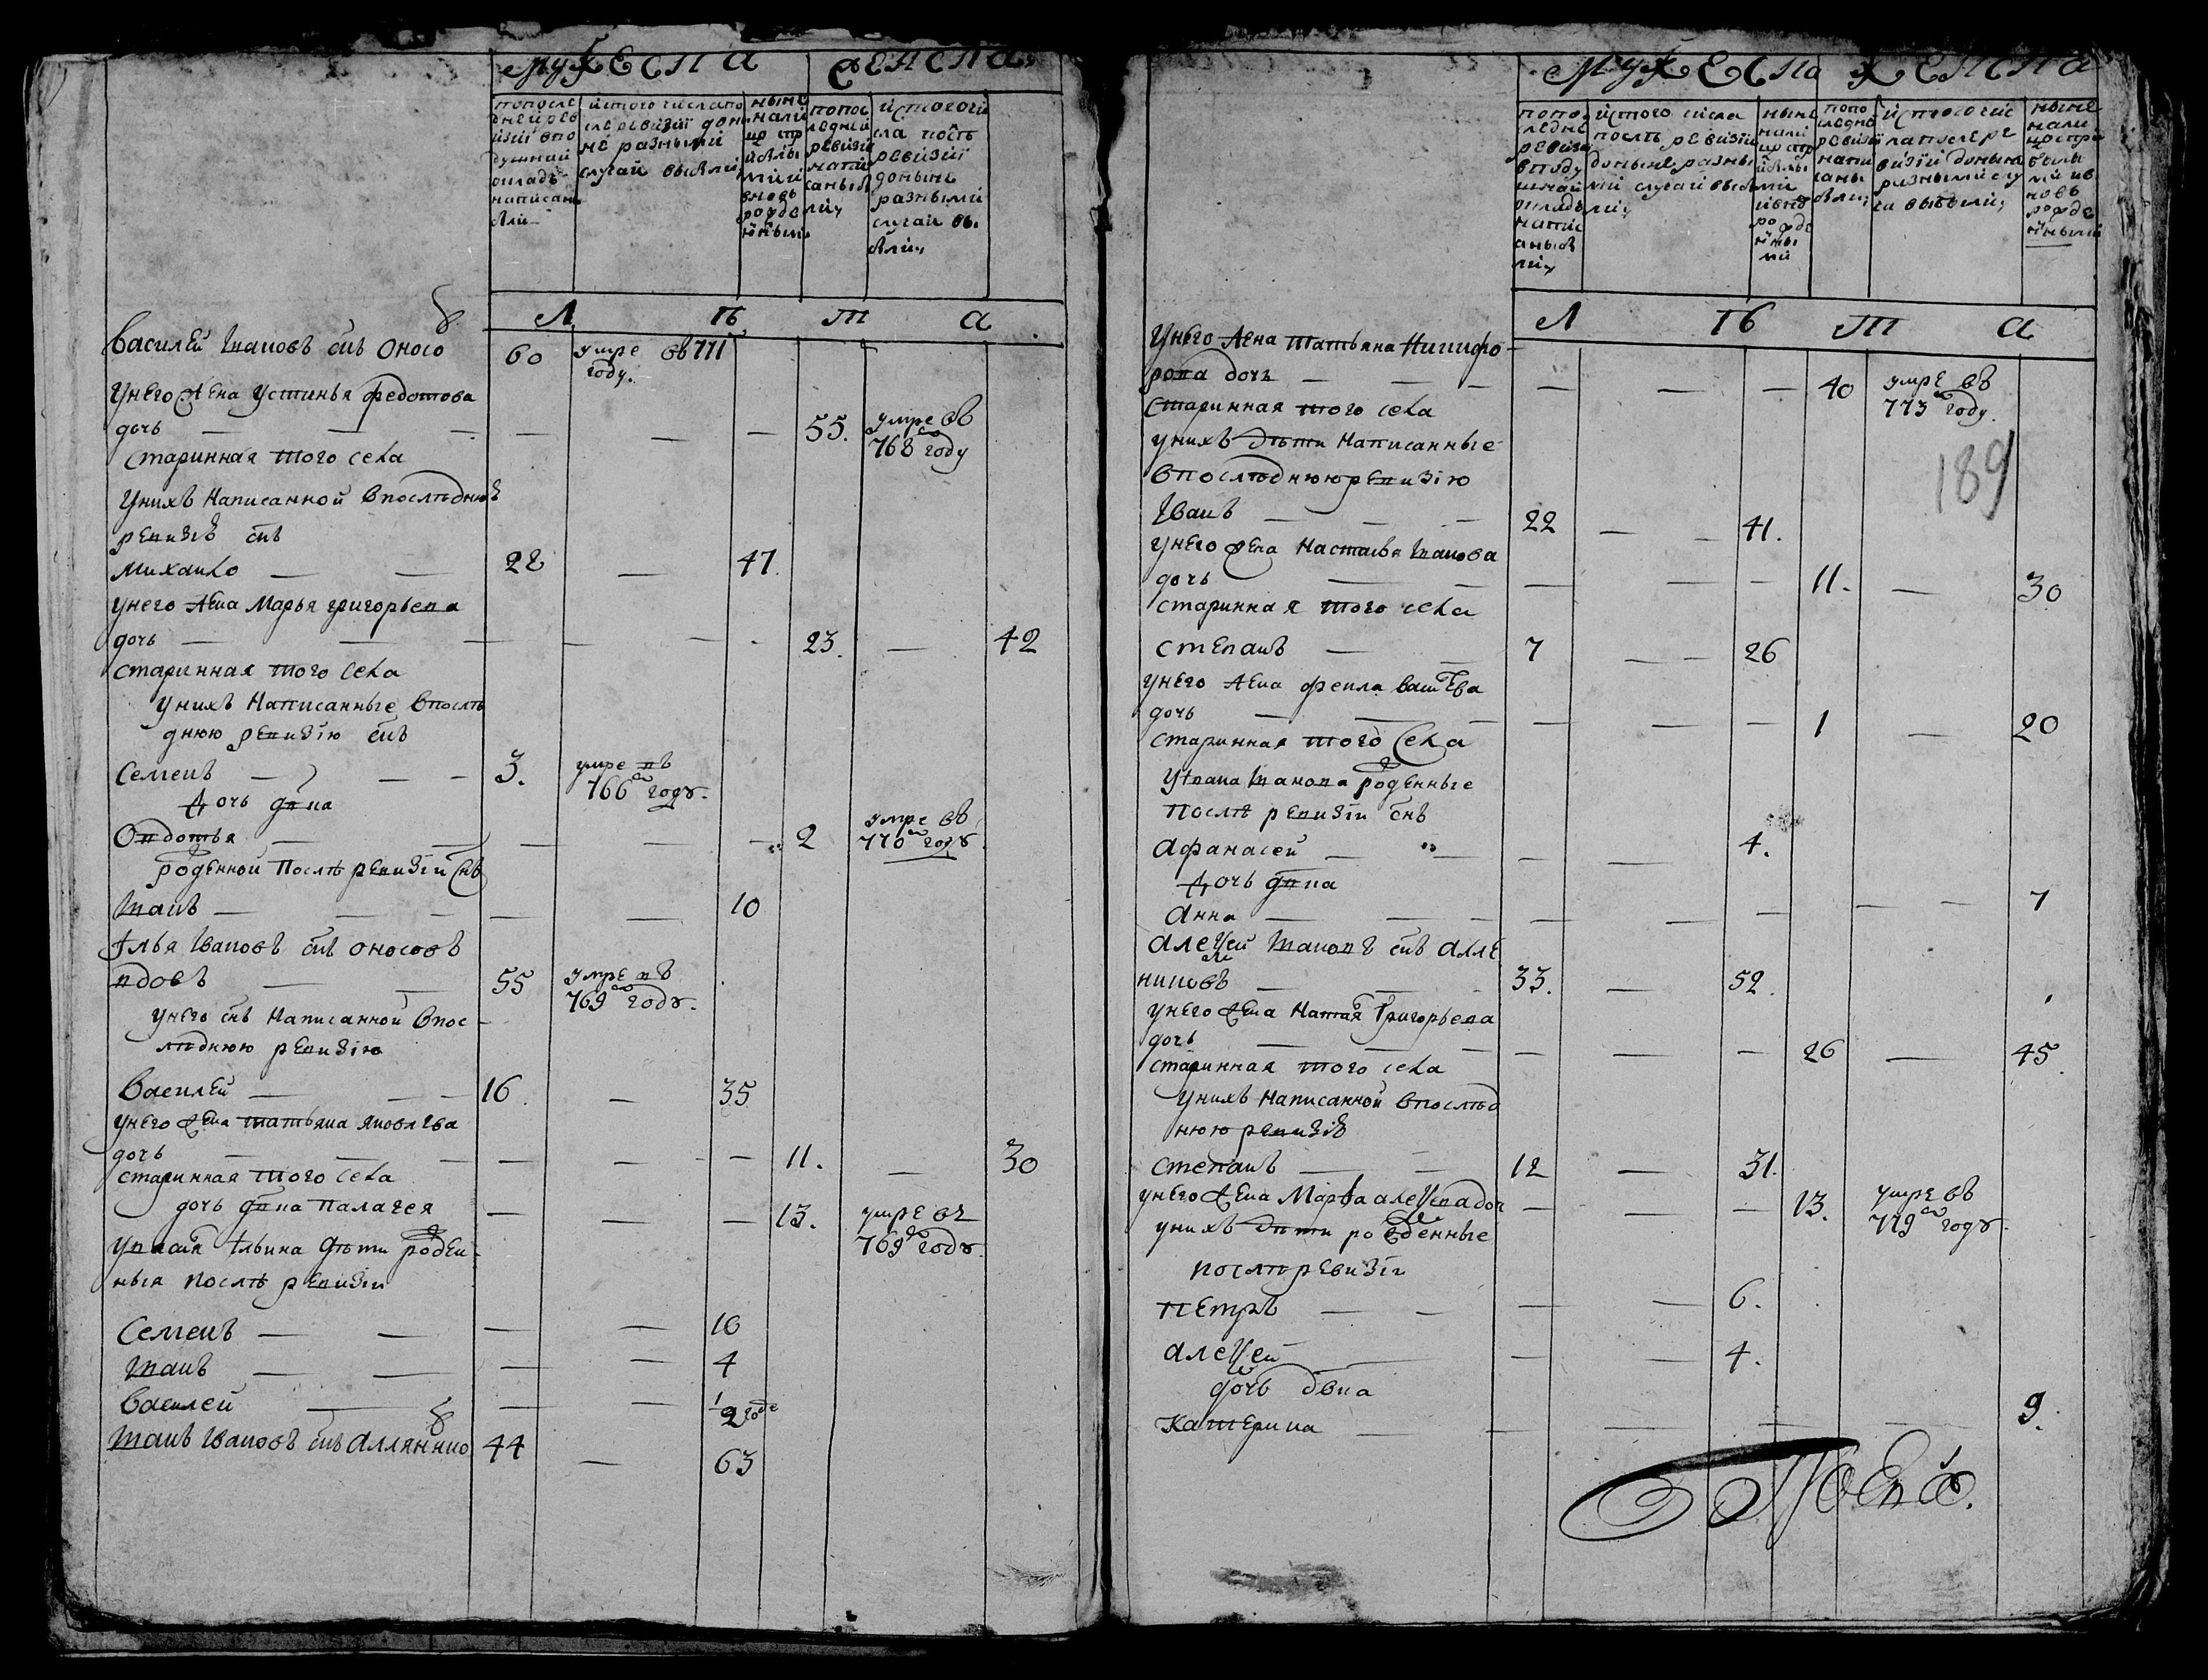 мужеска женска
попосле днеи рев изиї впо душнаи оклад написан ыли
їстого числапо сле ревизиї доны не разными случаи выбыли
ныне нали цо пр ибылы мии вновь рожде нными
попос ледней ревизиї напи саны были
їстогочи сла послѣ ревизиї донынѣ разными случаи вы были
Л Ѣ Т А
Василей Ивановъ снъ Оносо в 60 умре въ 771 году.
Унего жена Устинья Федотова
дочь — — — — — — 55. умре въ 768 году
старинная того села
Унихъ Написанной впослѣднюю
ревизїю снъ
Михайло — — 28 — 47.
Унего жена Марья Григорьева
дочь — — — — — — 23. — 42
старинная того села
Унихъ Написанные впослѣ
днюю ревизїю снъ
Семенъ — — — 3. умре въ 766 году.
дочь дѣвка
Овдотья — — — — — 2 умре въ 770 году.
роженной послѣ ревизїи снъ
Иванъ — — — — — 10
Илья Ивановъ снъ Оносовъ
вдовъ — — 55 умре въ 769 году.
Унего снъ Написанной впос-
лѣднюю ревизїю
Василей — — — 16. — 35
Унего жена Татьяна Яковлева
дочь — — — — — — 11. — 30
старинная того села
дочь дѣвка Палагея — — — 13. умре въ 769 году.
Уваси Ильина дѣти рожен-
ныя послѣ ревизїи
Семенъ — — — — 10
Иванъ — — — — 4
Василей — — — 1/2 годе
Иванъ Ивановъ снъ Аллянико в 44 — 63
мужеска женска
попо ледне ревизи вподу шнаи окладъ напис аныбы ли
їстого числа послѣ ревизїи донынѣ разны ми случаи выбы ли
ныне нали цо пр ибылы ми ивно рожде нны ми
попо следне ревизи напи саны были
їстогочис лапослере визїи донынѣ разнымислу чаи выбыли
ныне нали цоспри былы ми ив новь рожде нными
Л Ѣ Т А
Унего жена Татьяна Никифо-
рова дочь — — — — — — 40 умре въ 773 году.
старинная того села
унихъ дѣти Написанные
впослѣднююревизїю
189
Иванъ — — — 22 — — 41.
унего жена Настасья Иванова
дочь — — — — — 11. — 30
старинная того села
Степанъ — — 7 — — 26
унего жена Фекла Васильева
дочь — — — — — — 1 — 20
старинная того села
У Ивана Иванова роженные
послѣ ревизїи снъ
Афанасей — — — — 4.
дочь дѣвка
Анна — — — — — — — — 7
Алексей Ивановъ снъ Алле
никовъ — — — 33. — 52.
унего жена Наталья Григорьева
дочь — — — — — — 26 — 45
старинная того села
унихъ Написанной впослѣд
нюю ревизїю
Степанъ — — 12 — 31.
унего жена Марфа Алексеевадоч — — — 13. умре въ 779 году.
унихъ дѣти рожденные
послѣ ревизїи
Петръ — — — — 6.
Алексей — — — 4.
дочь дѣвка
Катерина — — — — — 9.